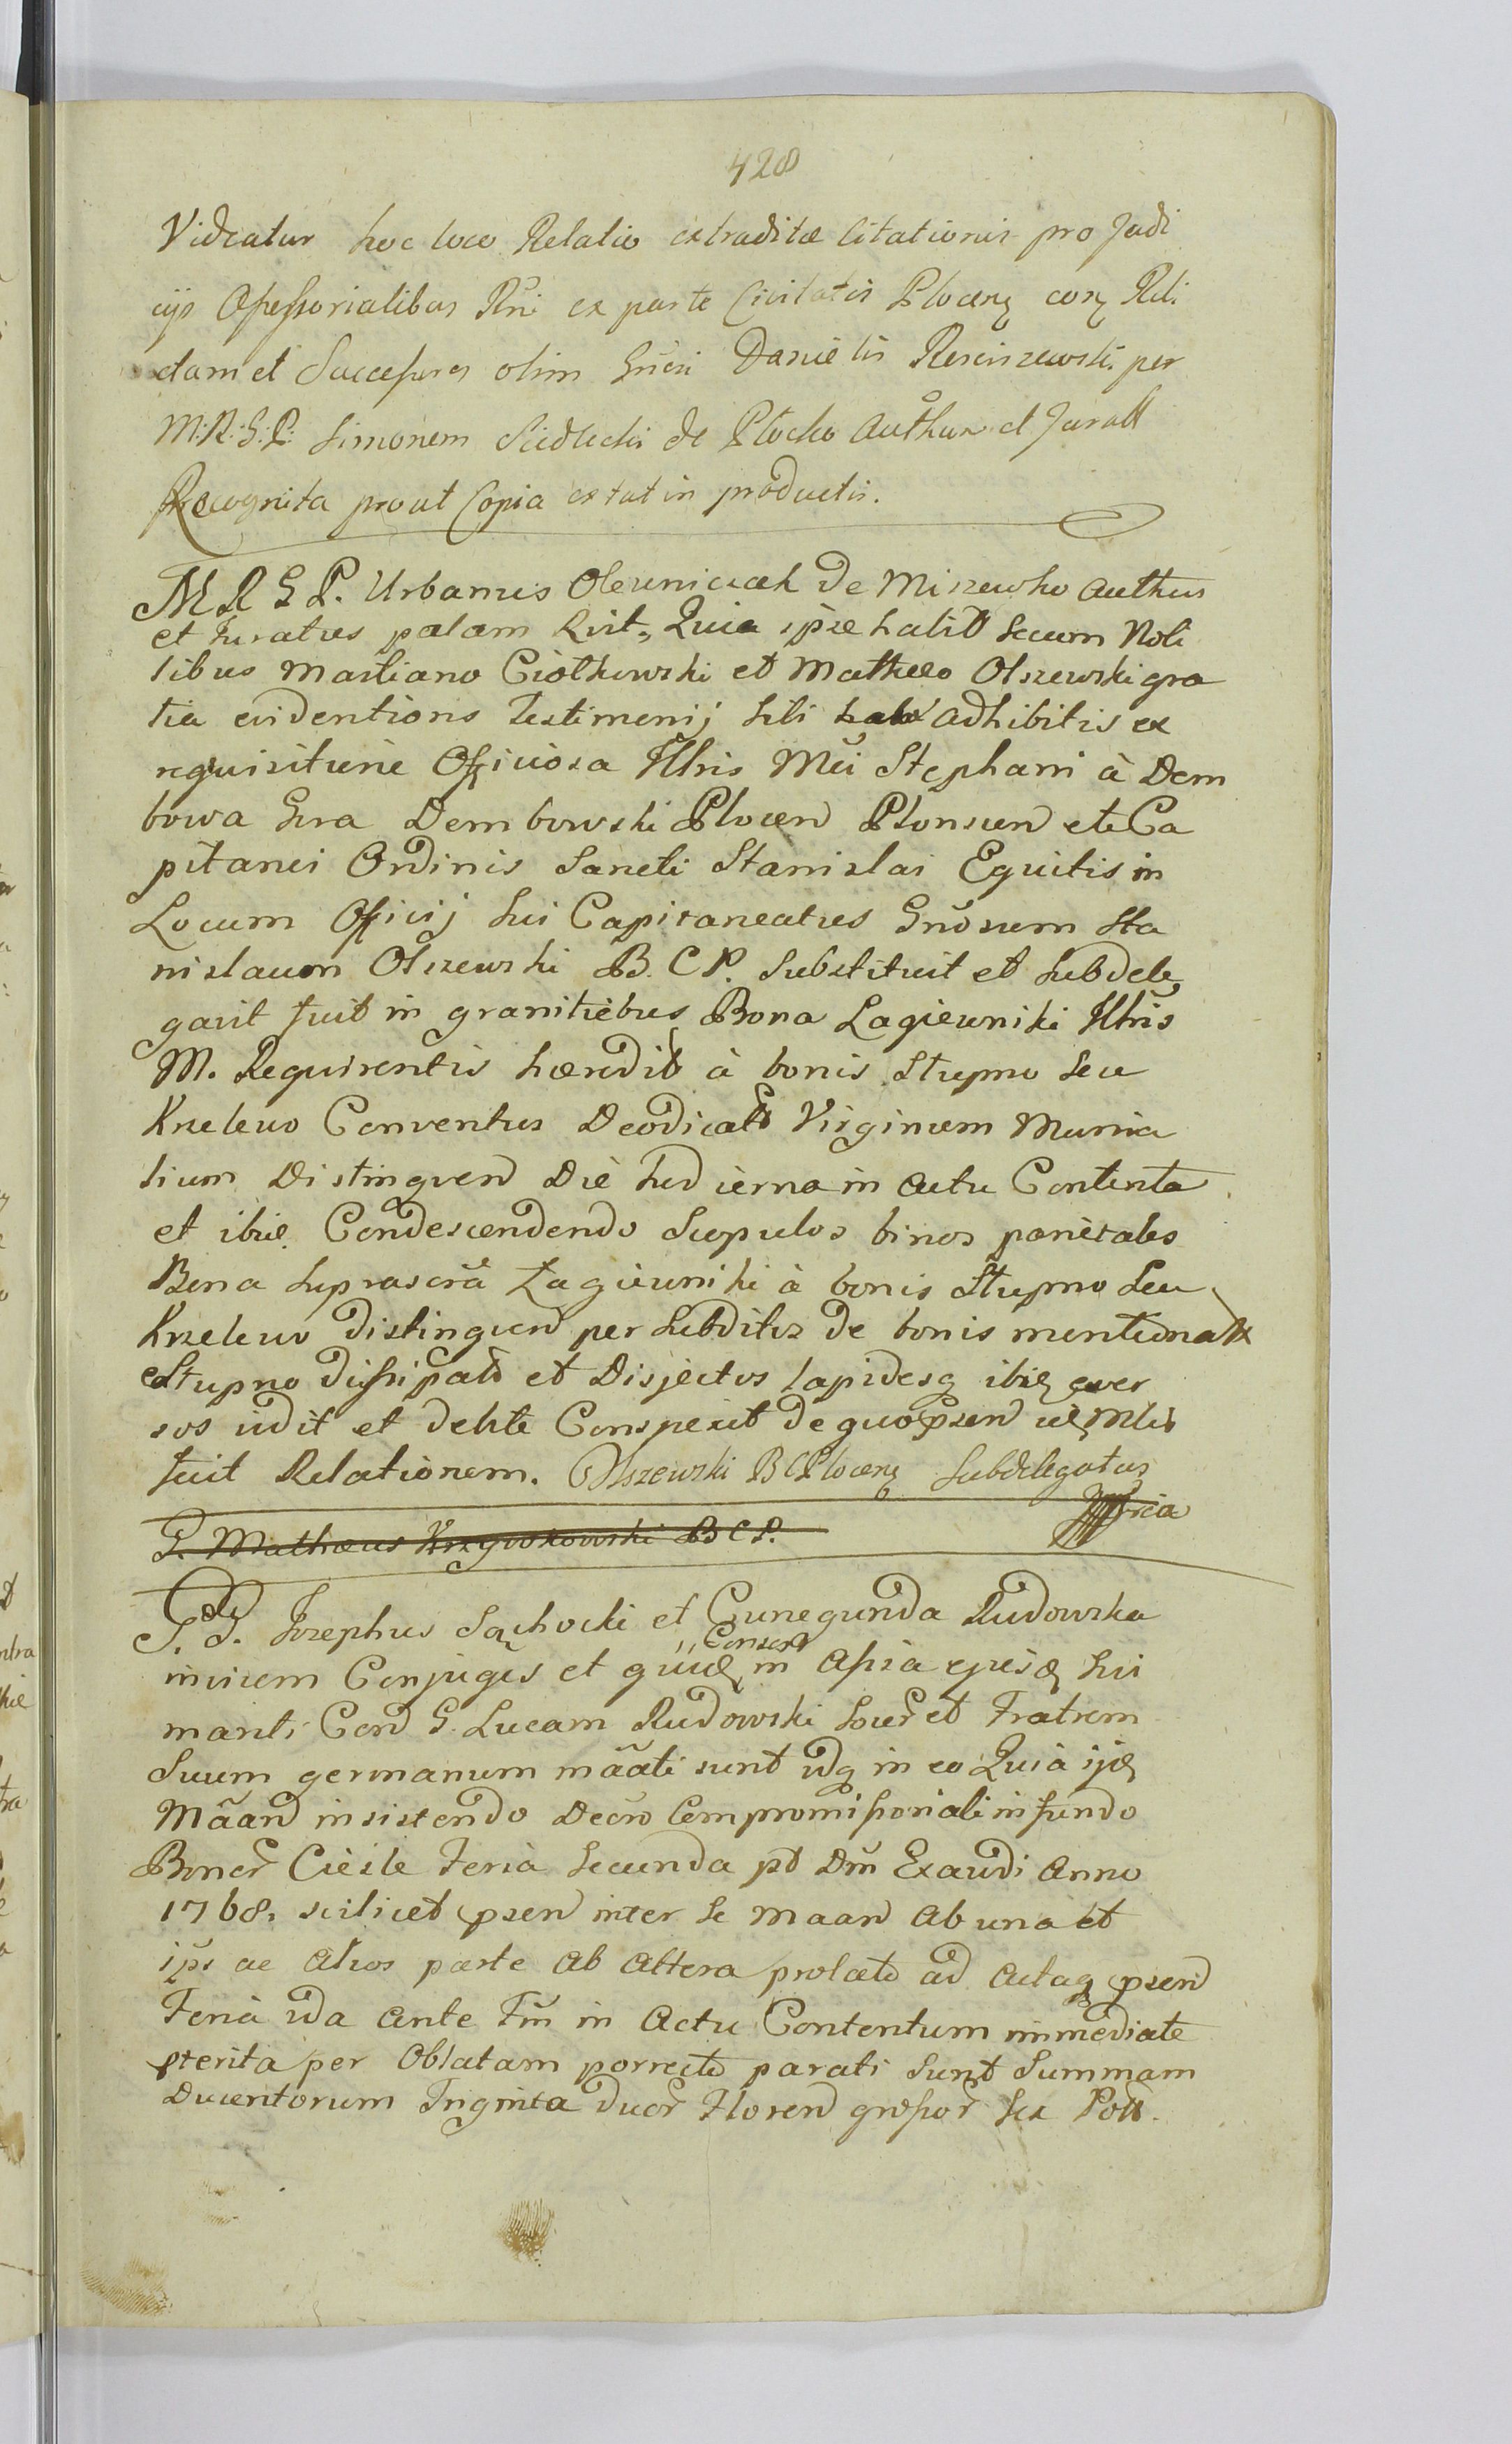 428
Videatur hoc loco Relatio extraditæ Citationis pro Judi
cijs Assessorialibus Rni ex parte Civitatis Plocen con Reli
ctam et Successores olim Gnosi Danielis Resciszewski per
M: R: G: P: Simonem Siedlecki de Plocko Authen et Juratt
Recognita prout Copia extat in productis.
M R G P. Urbanus Olexniczak de Miszewko Authus
et Juratus palam Rvit, Quia ipse habit Secum Nobi
libus Marliano Ciołkowski et Matheo Olszewski gra
tia evidentioris testimonij Sibi adhibitis ex
requisitione Officiosa Illris Mci Stephani à Dem
bowa Gora Dembowski Plocen Plonscen etc Ca
pitanei Ordinis Sancti Stanislai Equitis in
Locum Officij Sui Capitaneatus Gnosum Sta
nislaum Olszewski B. C P. Substituit et Subdele
gavit fuit in granitiebus Bona Lagiewniki Illris
M. Requirentis hæredit à bonis Stupno Seu
Krzelewo Conventus Deodicatt Virginum Monia
lium Distinguen Die hodierna in Actu Contenta
et ibiē Condescendendo Scopulos binos parietales
Bona Suprascrā Łagiewniki à bonis Stupno Seu
Krzelewo distinguen per Subditos de bonis mentionatt
Stupno dissipatt et Disjectos lapidesq ibiē ever
sos vidit et debite Conspexit de quo psen
fuit Relationem. Olszewski B C Plocen Subdelegatus
G. Mathæus Krzywokowski B C P.
G. G. Josephus Sochocki et Cunegunda Rudowska
invicem Conjuges et Consor in Assia ejusd Sui
mariti Con G. Lucam Rudowski Socer et Fratrem
Suum germanum māāti sunt idq in eo Quia ijd
Māān insistendo Decro Compromissoriali in fundo
Bonor Ciesle Feria Secunda pt Dm Exaudi Anno
1768, scilicet psen inter Se Maan Ab una et
ips ac Alios parte Ab Altera prolato ad Actaq psen
Feria 2da Ante Fm in Actu Contentum immediate
pterita per Oblatam porrecto parati Sunt Summam
Ducentorum Triginta duor Floren grossor Sex Poll.